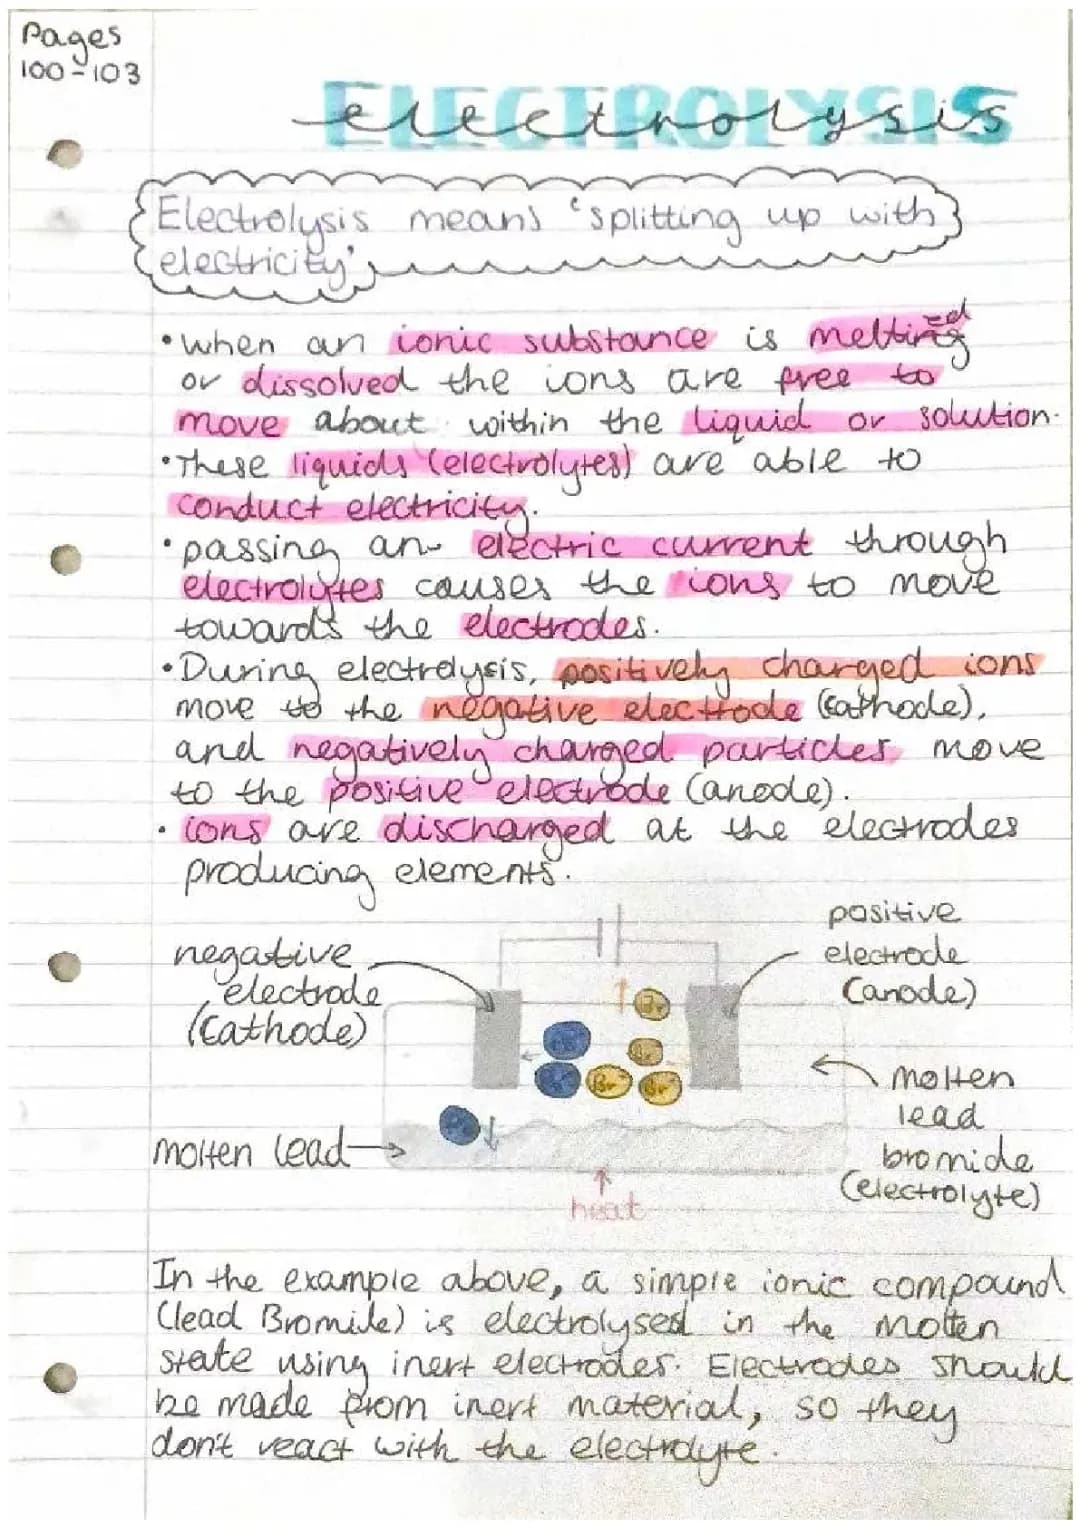 Pages
100-103
ELECTROLYSIS
electrolysis
Electrolysis means 'splitting up with
electricity'
•when an ionic substance is melting ed
or dissolved the ions are free to
move about within the liquid or solution.
•These liquids (electrolytes) are able to
conduct electricity.
•passing an electric current through
electrolytes causes the ions to move
towards the electrodes.
•During electrolysis, positively charged ions
move to the negative electrode (cathode),
and negatively charged particles move
to the positive electrode (anode).
•ions are discharged at the electrodes
producing elements.
negative
electrode
(cathode)
positive
electrode
(anode)
Br
Br
Br
Br
molten lead
molten
lead
bromide
(electrolyte)
heat
In the example above, a simple ionic compound
(lead Bromide) is electrolysed in the molten
state using inert electrodes. Electrodes should
be made from inert material, so they
don't react with the electrolyte.